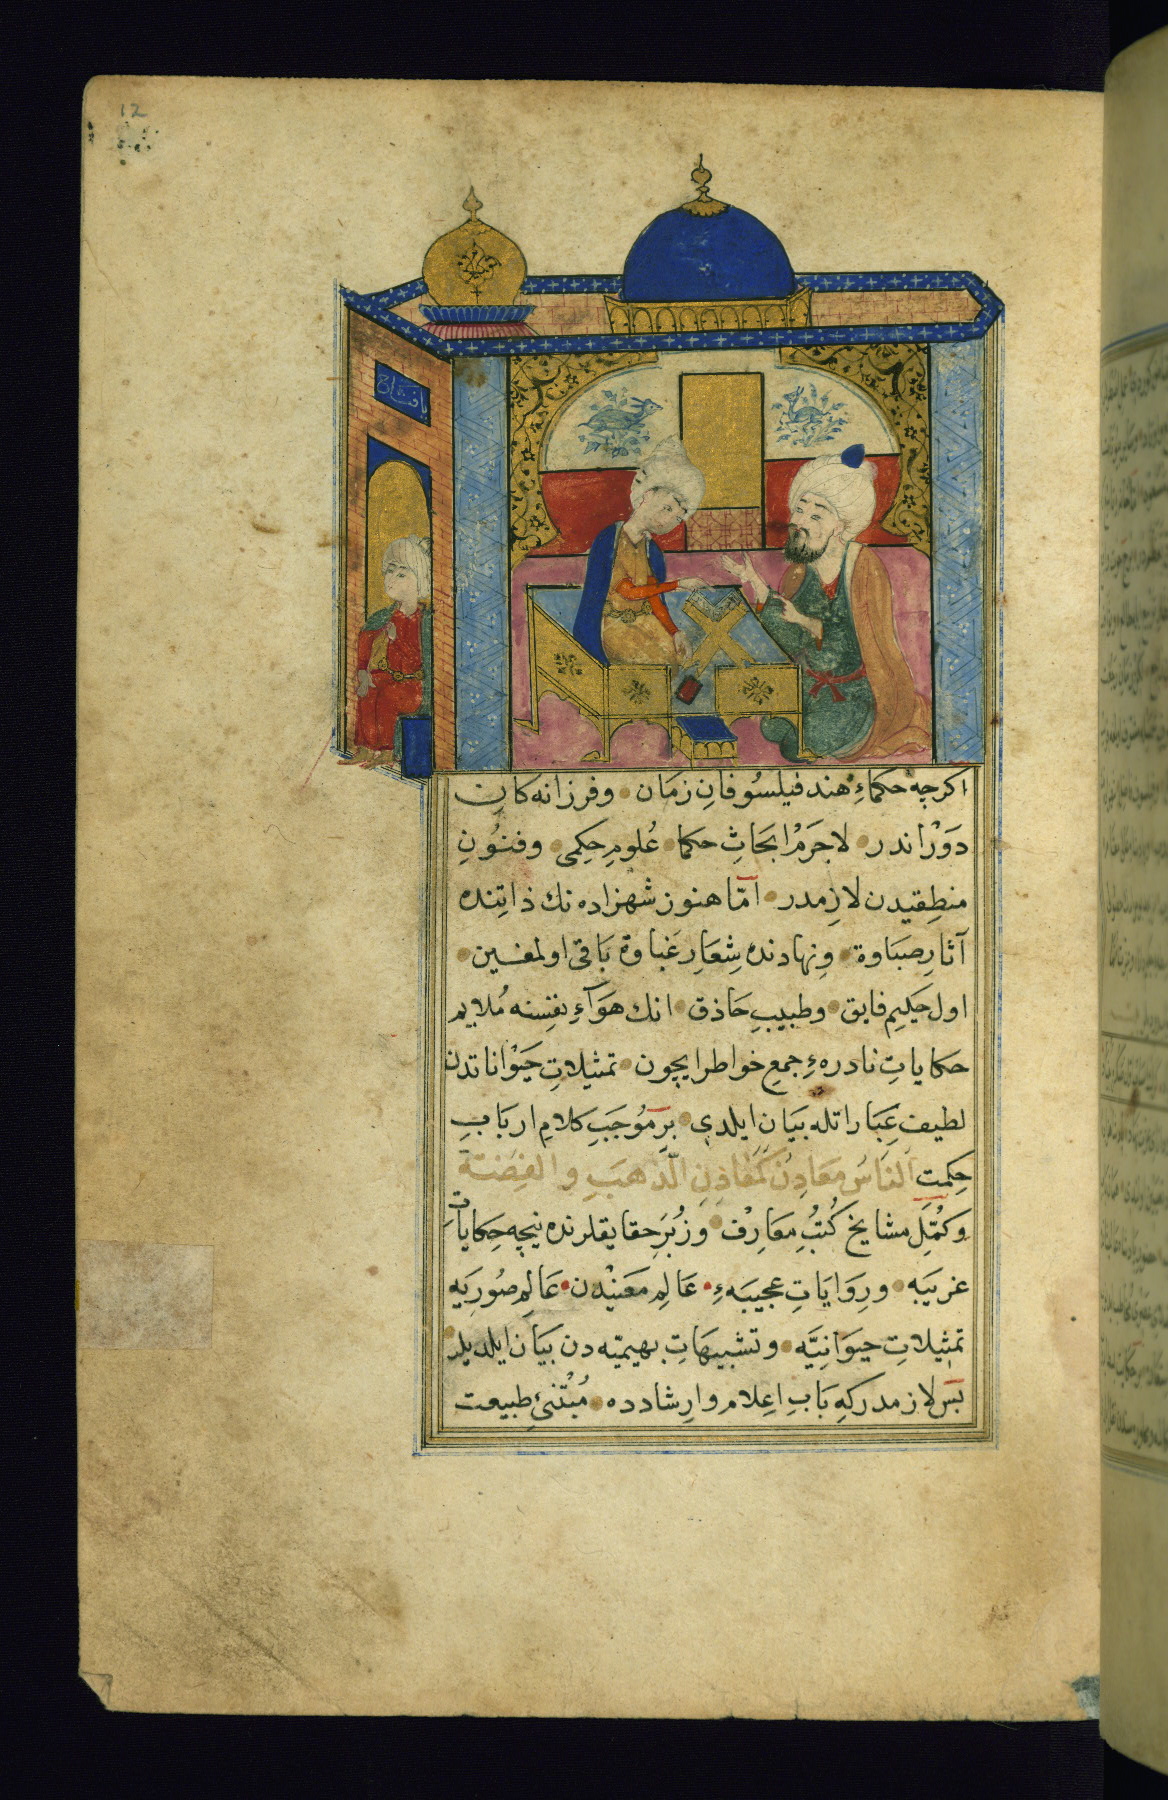 12
یا فتاح
اکرچه حکماءِ هند فیلسُوفانِ زمَان وفرزانه کانِ
دَوْراندر لاجَرَمْ ابحَاثِ حکما عُلومِ حِکمی وفنُونِ
منطِقیدن لازمدر امّا هنوز شهزاده نك ذاتِنده
آثارِ صبَاوة ونهادنده شِعَارِ غباوة بَاقی اولمغین
اول حکیمِ فایق وطبیبِ حَاذق انك هَوَآءِ نفسِنه مُلایم
حکایاتِ نادره ءِ جمعِ خواطر ایچون تمثیلاتِ حَیَوْاناتدن
لطیف عِبَاراتله بیَان ایلدی برِ مُوجَبِ کلامِ اربَابِ
حِکمت النّاسُ معَادِنُ کَمَعَادِنِ الذّهَبِ والفِضَّة
وکُمَّلِ مشایخ کُتُبِ مَعَارِفْ وزُبَرِ حقایقلرنده نیچه حِکایاتِ
غریبَه ورِوَایَاتِ عجیبَه ءِ عَالمِ مَعَنیْدن عَالمِ صُوریَه
تمثیلاتِ حیوَانیَّه وتشبیهَاتِ بهیمیّه دن بیَان ایلدیلر
بَس لازمدر که بَابِ اعِلام وارِشادده مُبْتنئِ طبیعت